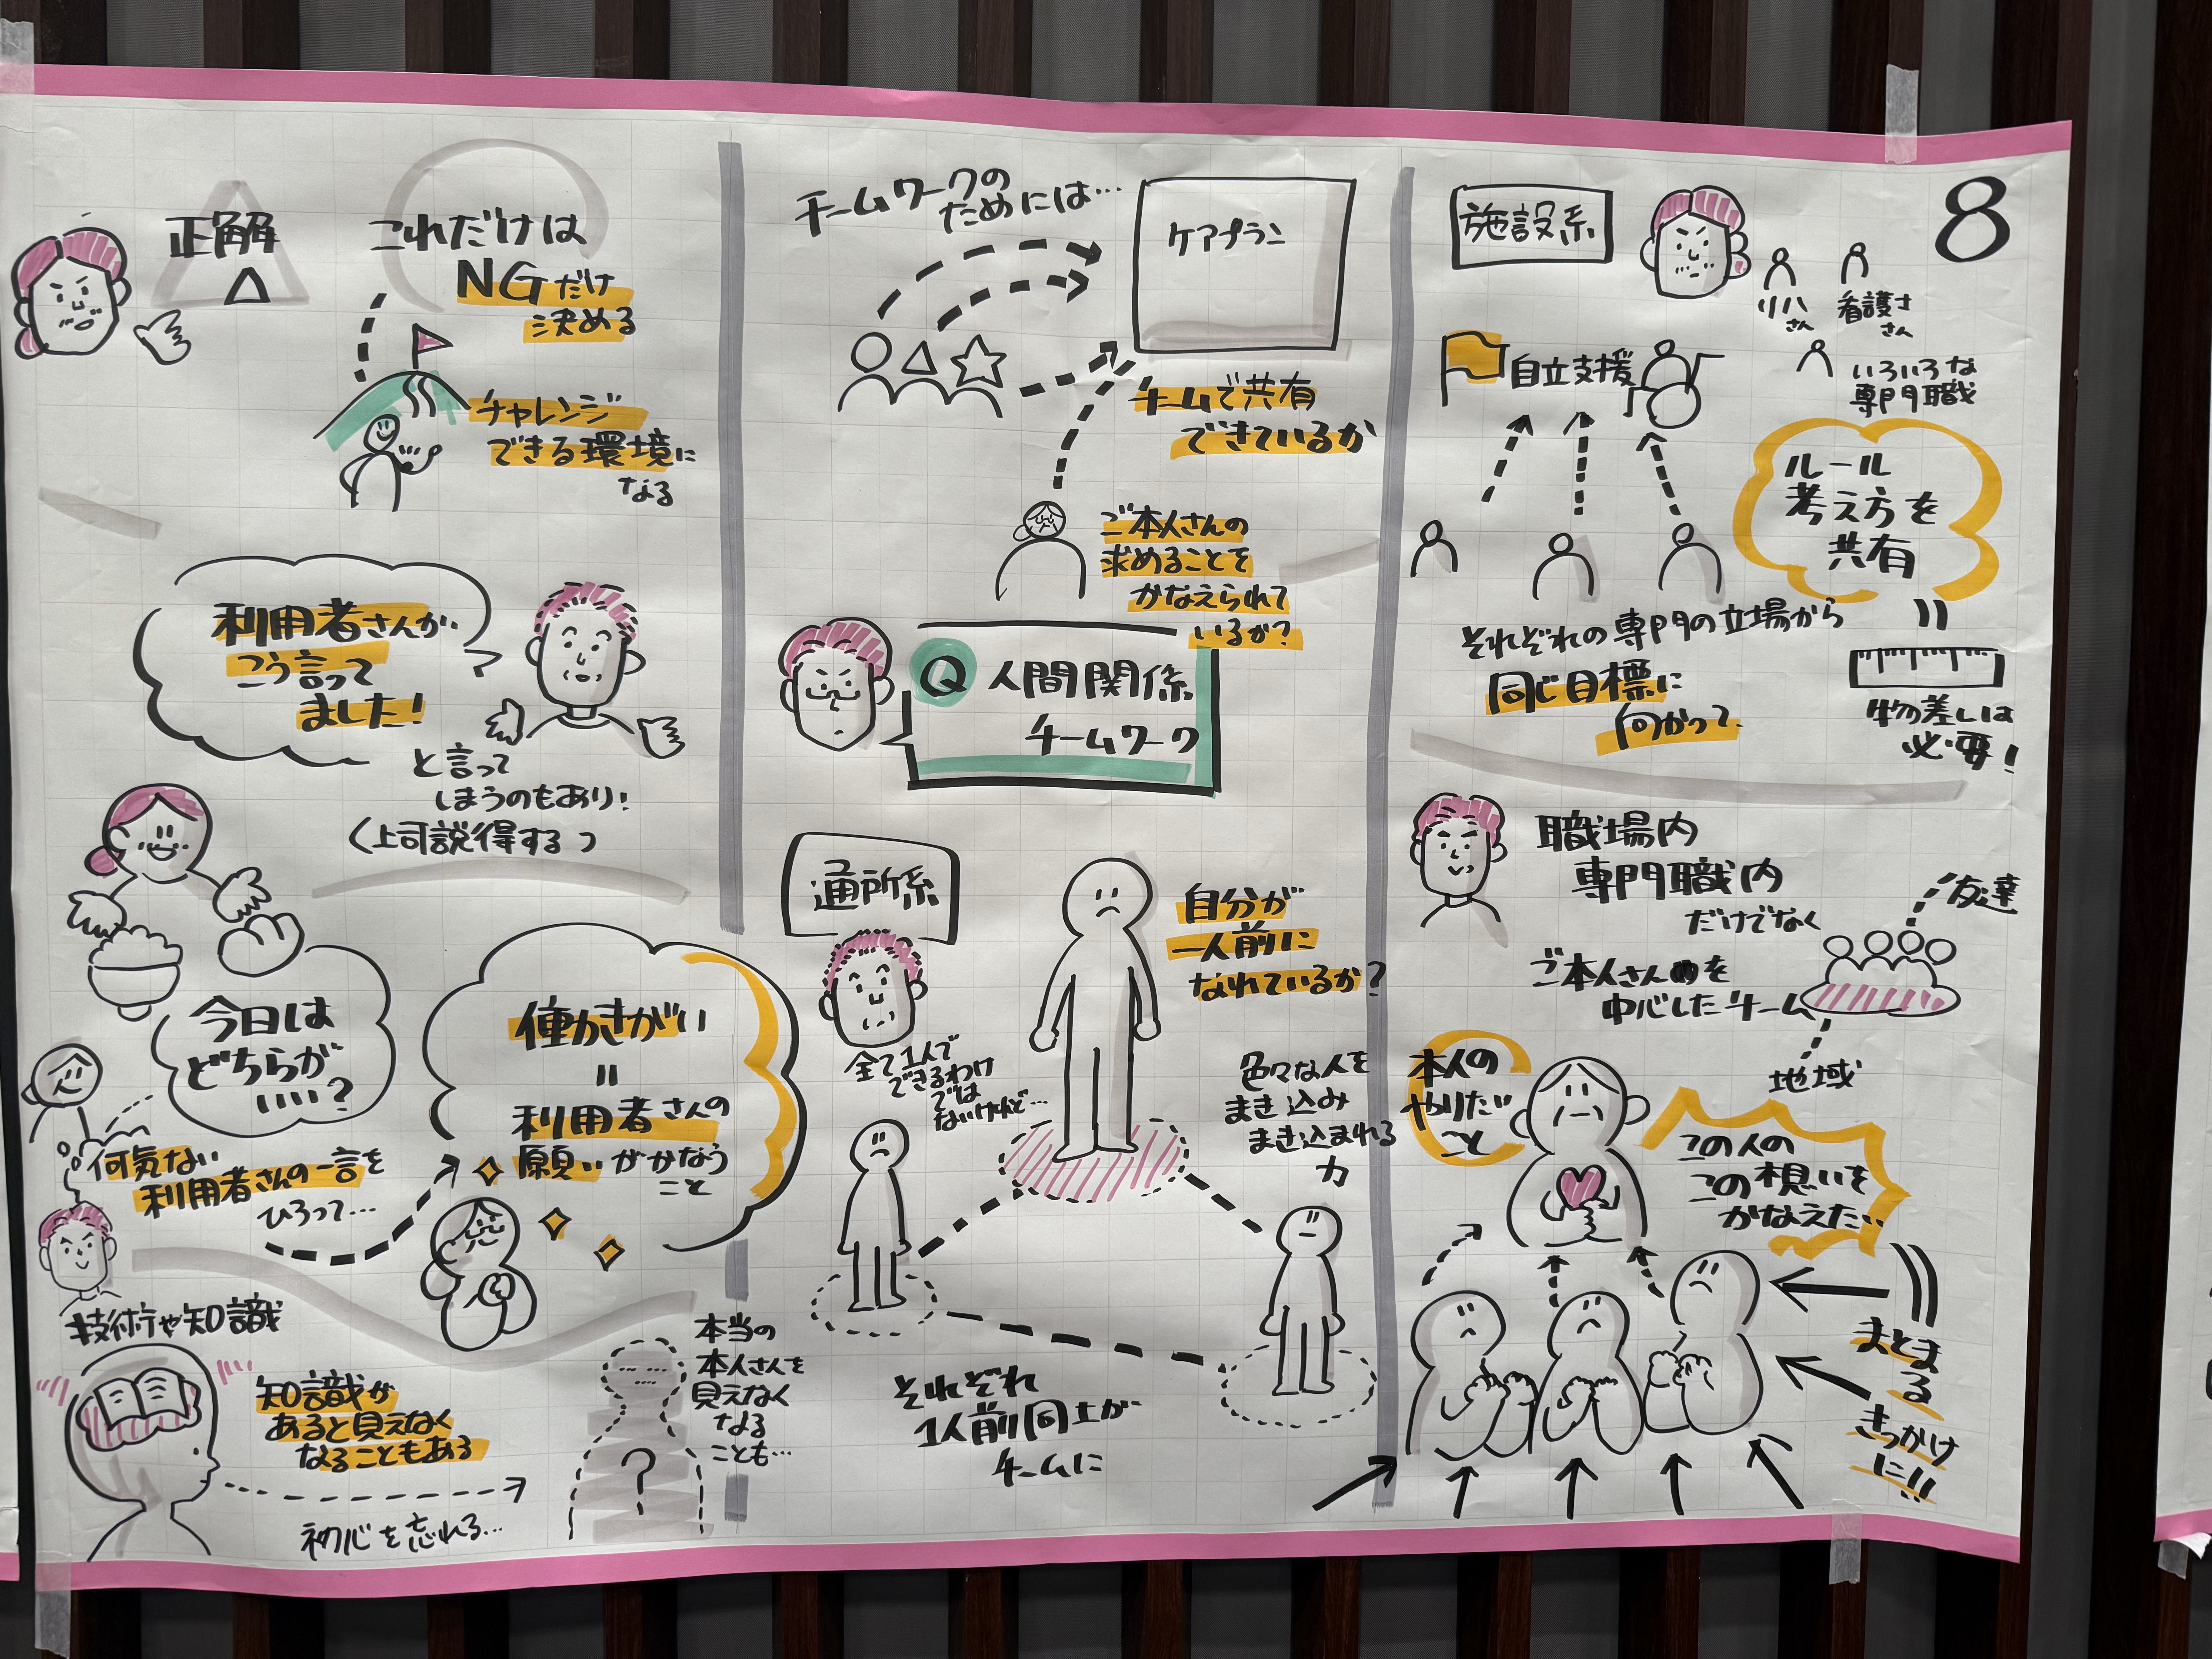 8
正解
これだけは
NGだけ
決める
チャレンジ
できる環境に
なる
利用者さんが
こう言って
ました!
と言って
しまうのもあり!
(上司説得する)
今日は
どちらが
いい?
何気ない
利用者さんの一言を
ひろって…
働きがい
=
利用者さんの
願いがかなう
こと
技術や知識
知識が
あると見えなく
なることもある
初心を忘れる…
本当の
本人さんを
見えなく
なる
ことも…
チームワークの
ためには…
ケアプラン
チームで共有
できているか
ご本人さんの
求めることを
かなえられて
いるか?
Q 人間関係
チームワーク
通所系
全て1人で
できるわけ
では
ないけど…
自分が
一人前に
なれているか?
色々な人を
まき込み
まき込まれる
力
それぞれ
1人前同士が
チームに
施設系
リハ
さん
看護さ
さん
いろいろな
専門職
自立支援
ルール
考え方を
共有
それぞれの専門の立場から
同じ目標に
向かって
=
物差しは
必要!
職場内
専門職内
だけでなく
ご本人さんを
中心したチーム
友達
地域
本人の
やりたい
こと
この人の
この想いを
かなえたい
まとま
る
きっかけ
に!!